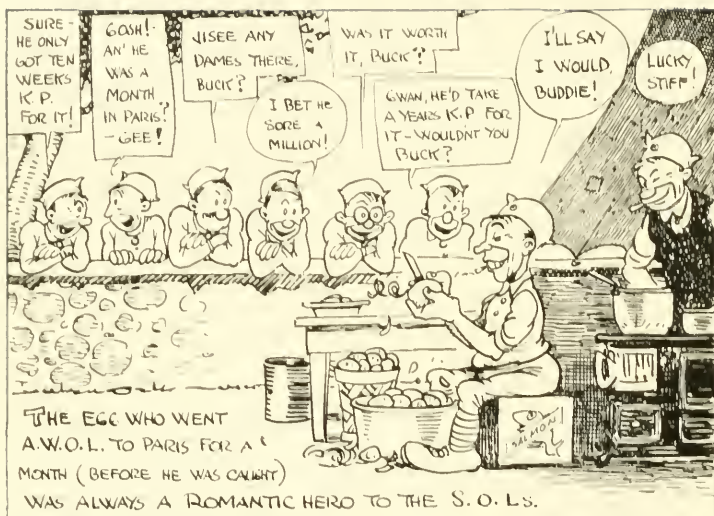 SURE -
HE ONLY
GOT TEN
WEEKS
K.P.
FOR IT!
GOSH! -
AN' HE
WAS A
MONTH
IN PARIS?
- GEE!
JISEE ANY
DAMES THERE,
BUCK?
I BET HE
SORE A
MILLION!
WAS IT WORTH
IT, BUCK?
GWAN, HE'D TAKE
A YEARS K.P FOR
IT - WOULDN'T YOU
BUCK?
I'LL SAY
I WOULD,
BUDDIE!
LUCKY
STIFF!
SALMON
THE EGG WHO WENT
A.W.O.L. TO PARIS FOR A
MONTH (BEFORE HE WAS CAUGHT)
WAS ALWAYS A ROMANTIC HERO TO THE S.O.L'S.